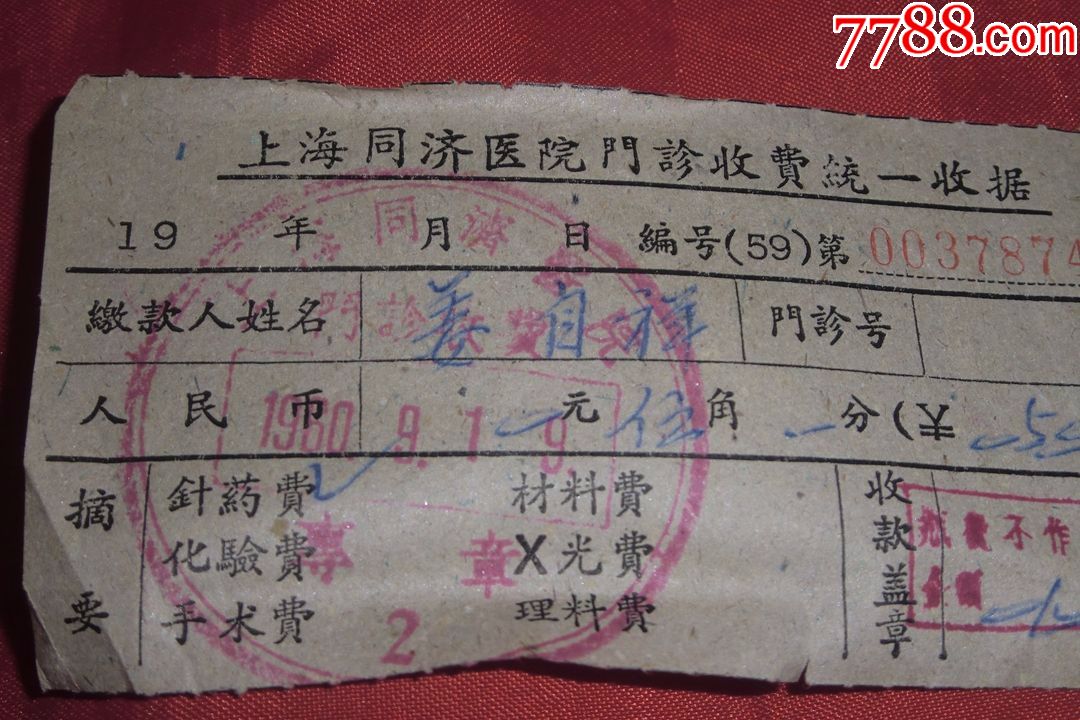 7788.com
上海同济医院門診收費統一收据
19 年 月 日 編号(59)第 0037874
繳款人姓名 姜自祥 門診号
人民币 一元伍角 分(夫
摘要 針药費 材料費 收款盖章
化驗費 X光費
手术費 理料費
同濟
門診 費
1960.9.1 9
專章
2
費不作